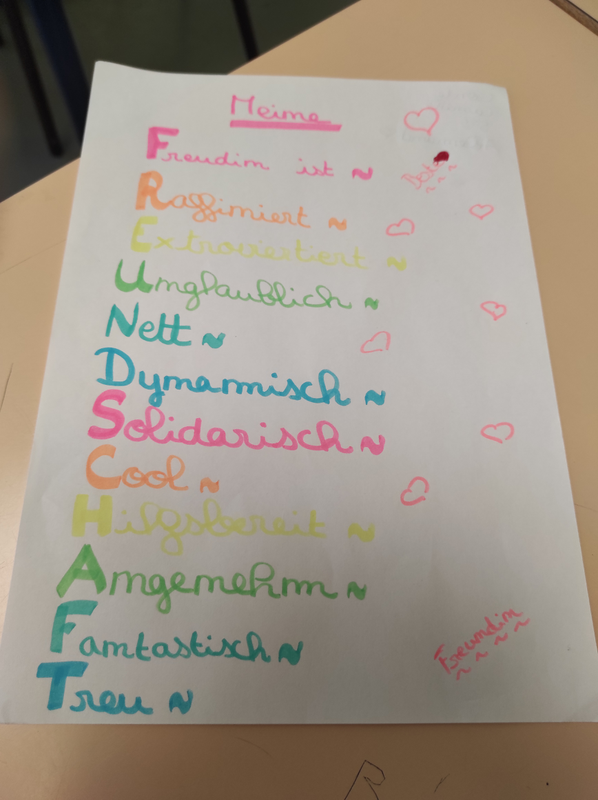 Meine
Freudin ist ~
Raffiniert ~
Extrovertiert ~
Unglaublich ~
Nett ~
Dynamisch ~
Solidarisch ~
Cool ~
Hilfsbereit ~
Angenehm ~
Fantastisch ~
Treu ~
Freundin